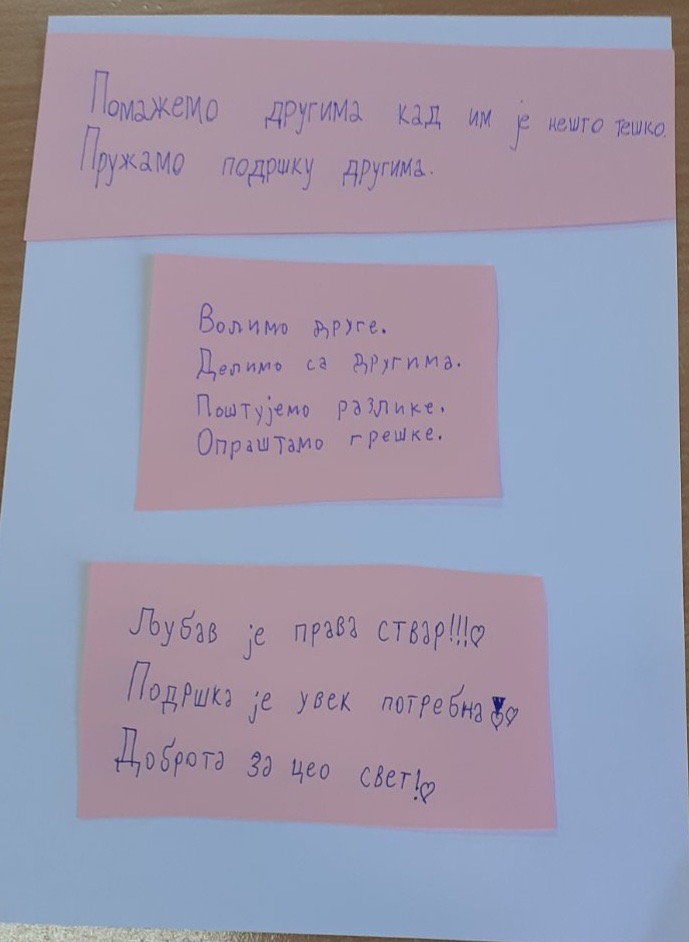 Помажемо другима кад им је нешто тешко.
Пружамо подршку другима.
Волимо друге.
Делимо са другима.
Поштујемо разлике.
Опраштамо грешке.
Љубав је права ствар!!!♡
Подршка је увек потребна!♡♡
Доброта за цео свет!♡